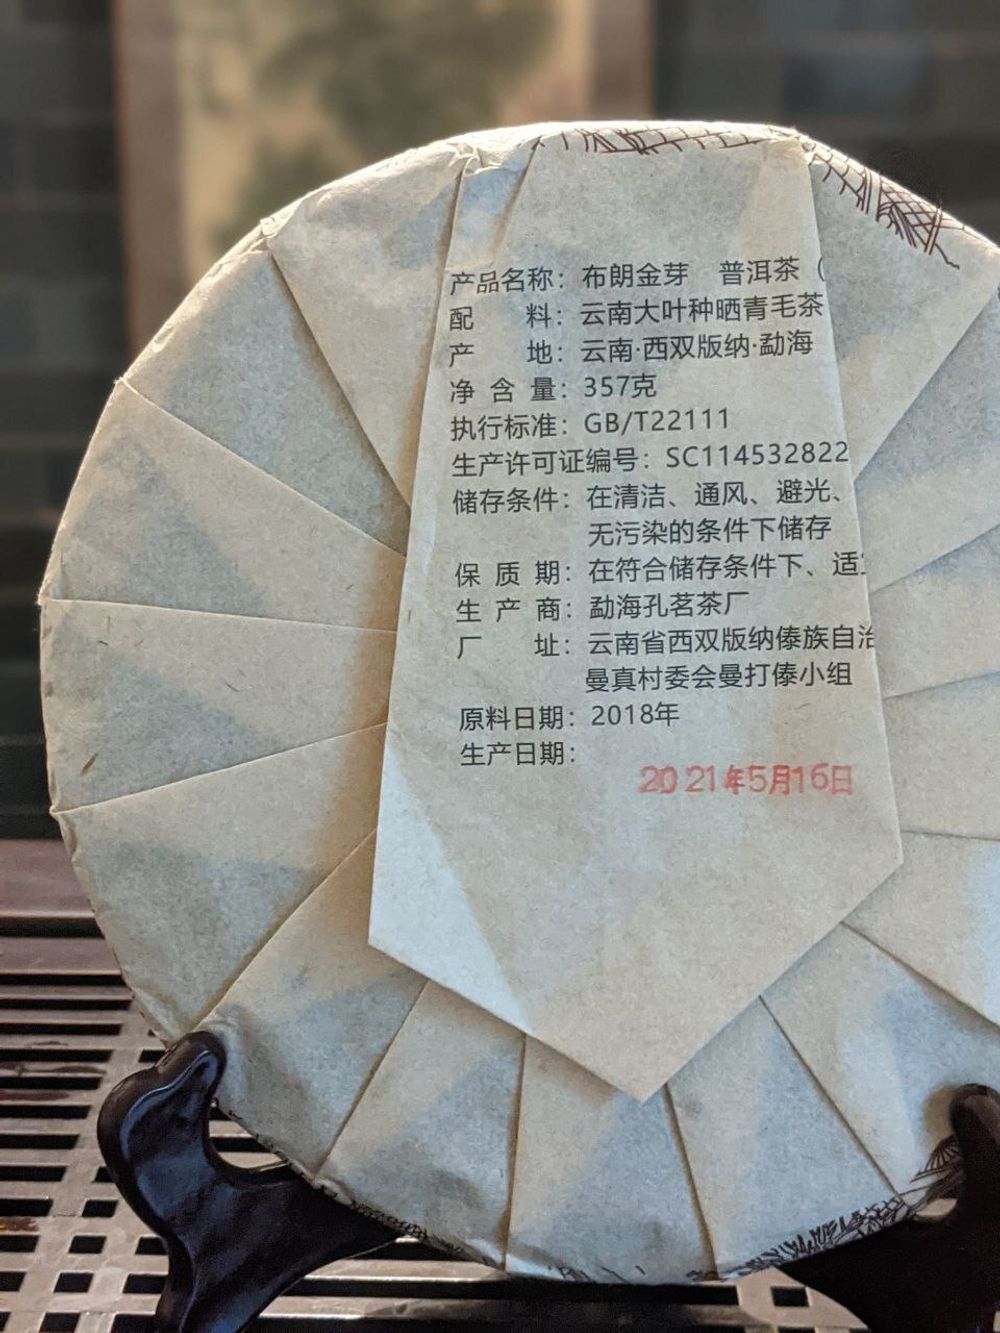 产品名称：布朗金芽　普洱茶（
配　　料：云南大叶种晒青毛茶
产　　地：云南·西双版纳·勐海
净 含 量：357克
执行标准：GB/T22111
生产许可证编号：SC114532822
储存条件：在清洁、通风、避光、
无污染的条件下储存
保 质 期：在符合储存条件下、适
生 产 商：勐海孔茗茶厂
厂　　址：云南省西双版纳傣族自治
曼真村委会曼打傣小组
原料日期：2018年
生产日期：
2021年5月16日